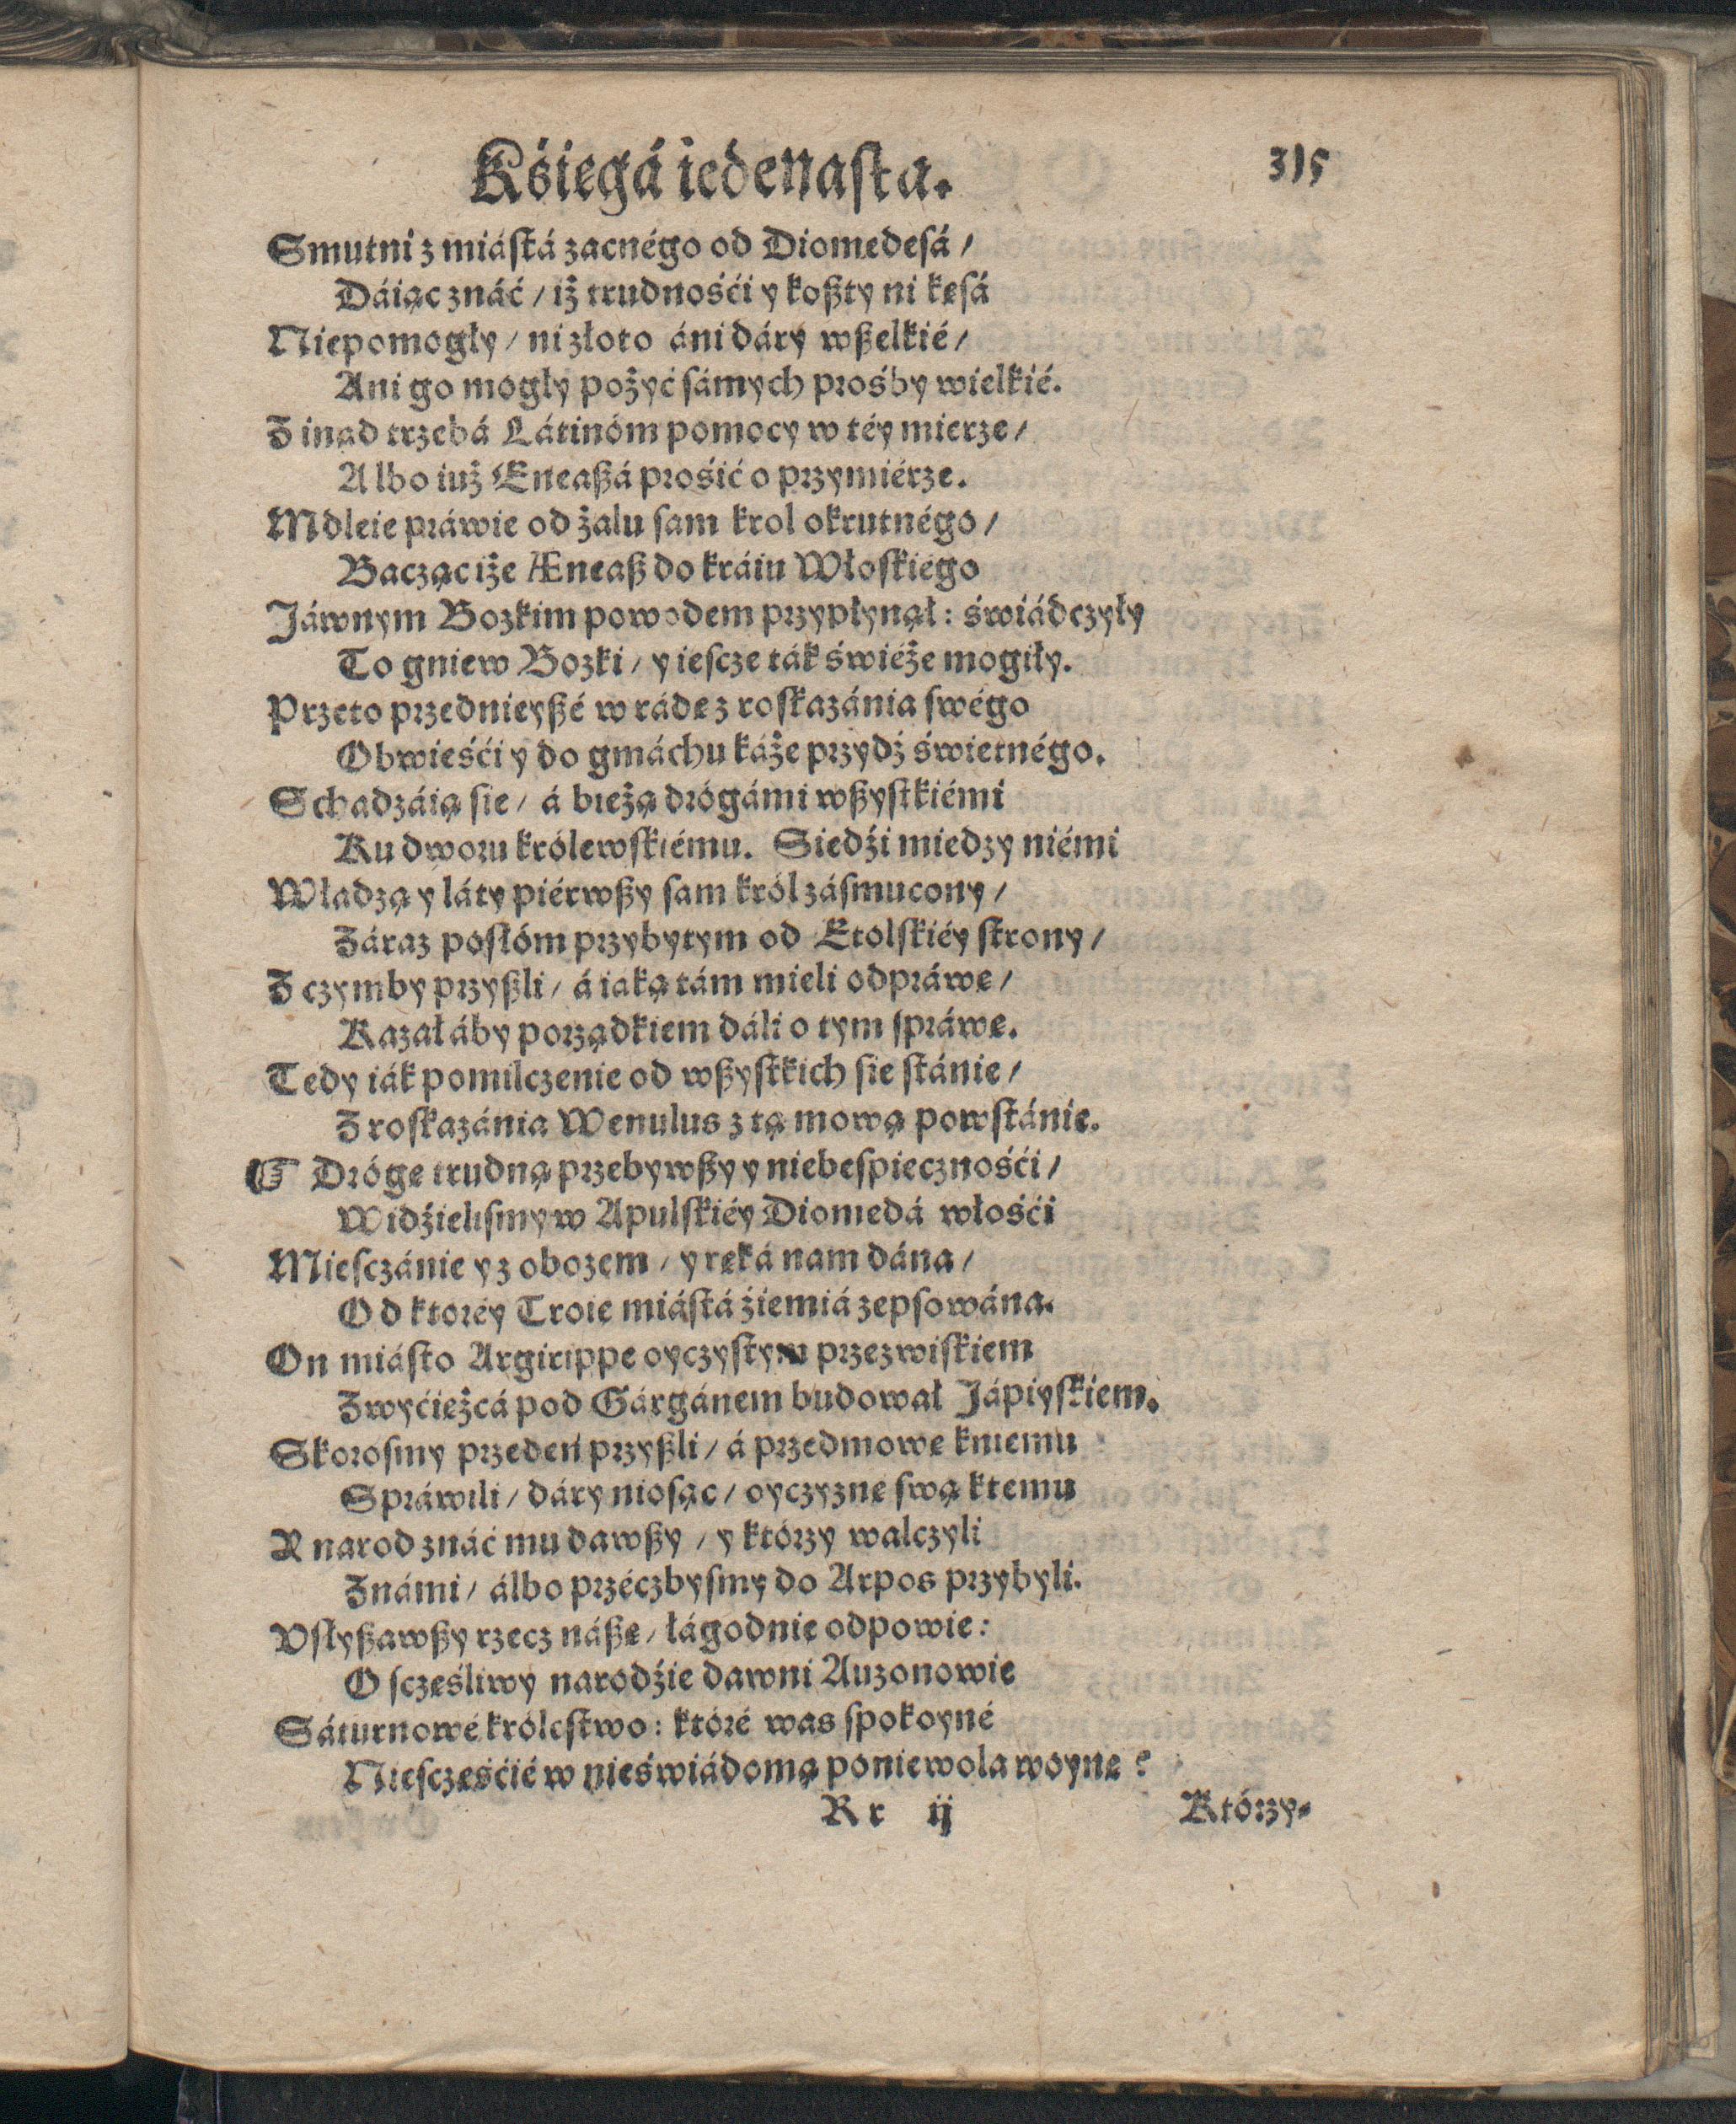 Kśięgá iedenasta. 315
Smutni z miástá zacnégo od Diomedesá /
Dáiąc znáć / iż trudnośći y koßty ni kęsá
Niepomogły / ni złoto áni dáry wßelkié /
Ani go mogły pożyć sámych prośby wielkié.
Z inąd trzebá Látinóm pomocy w téy mierze /
Albo iuż Eneaßá prośić o przymiérze.
Mdleie práwie od żalu sam krol okrutnégo /
Bacząc iże Æneaß do kráiu Włoskiego
Jáwnym Bozkim powodem przypłynął: świádczyły
To gniew Bozki / y iescze ták świéże mogiły.
Przeto przednieyßé w rádę z roskazánia swégo
Obwieśći y do gmáchu káże przydź świetnégo.
Schadzáią sie / á bieżą drógámi wßystkiémi
Ku dworu królewskiému. Siedźi miedzy niémi
Władzą y láty piérwßy sam król zásmucony /
Záraz posłóm przybytym od Etolskiéy strony /
Z czymby przyßli / á iaką tám mieli odpráwę /
Kazał áby porządkiem dáli o tym spráwę.
Tedy iák pomilczenie od wßystkich sie stánie /
Z roskazánia Wenulus z tą mową powstánie.
☞ Drógę trudną przebywßy y niebespiecznośći /
Widźielismy w Apulskiéy Diomedá włośći
Miesczánie y z obozem / y ręká nam dána /
Od ktoréy Troie miástá źiemiá zepsowána.
On miásto Argirippę oyczystym przezwiskiem
Zwyćiężcá pod Gárgánem budował Jápiyskiem.
Skorosmy przedeń przyßli / á przedmowę kniemu
Spráwili / dáry niosąc / oyczyznę swą ktemu
Y narod znáć mu dawßy / y którzy walczyli
Známi / álbo przéczbysmy do Arpos przybyli.
Vsłyßawßy rzecz náßę / łágodnie odpowie:
O sczęśliwy narodźie dawni Auzonowie
Sáturnowé królestwo: któré was spokoyné
Niesczęśćié w nieświádomą poniewola woynę?
Rr ij Którzy-